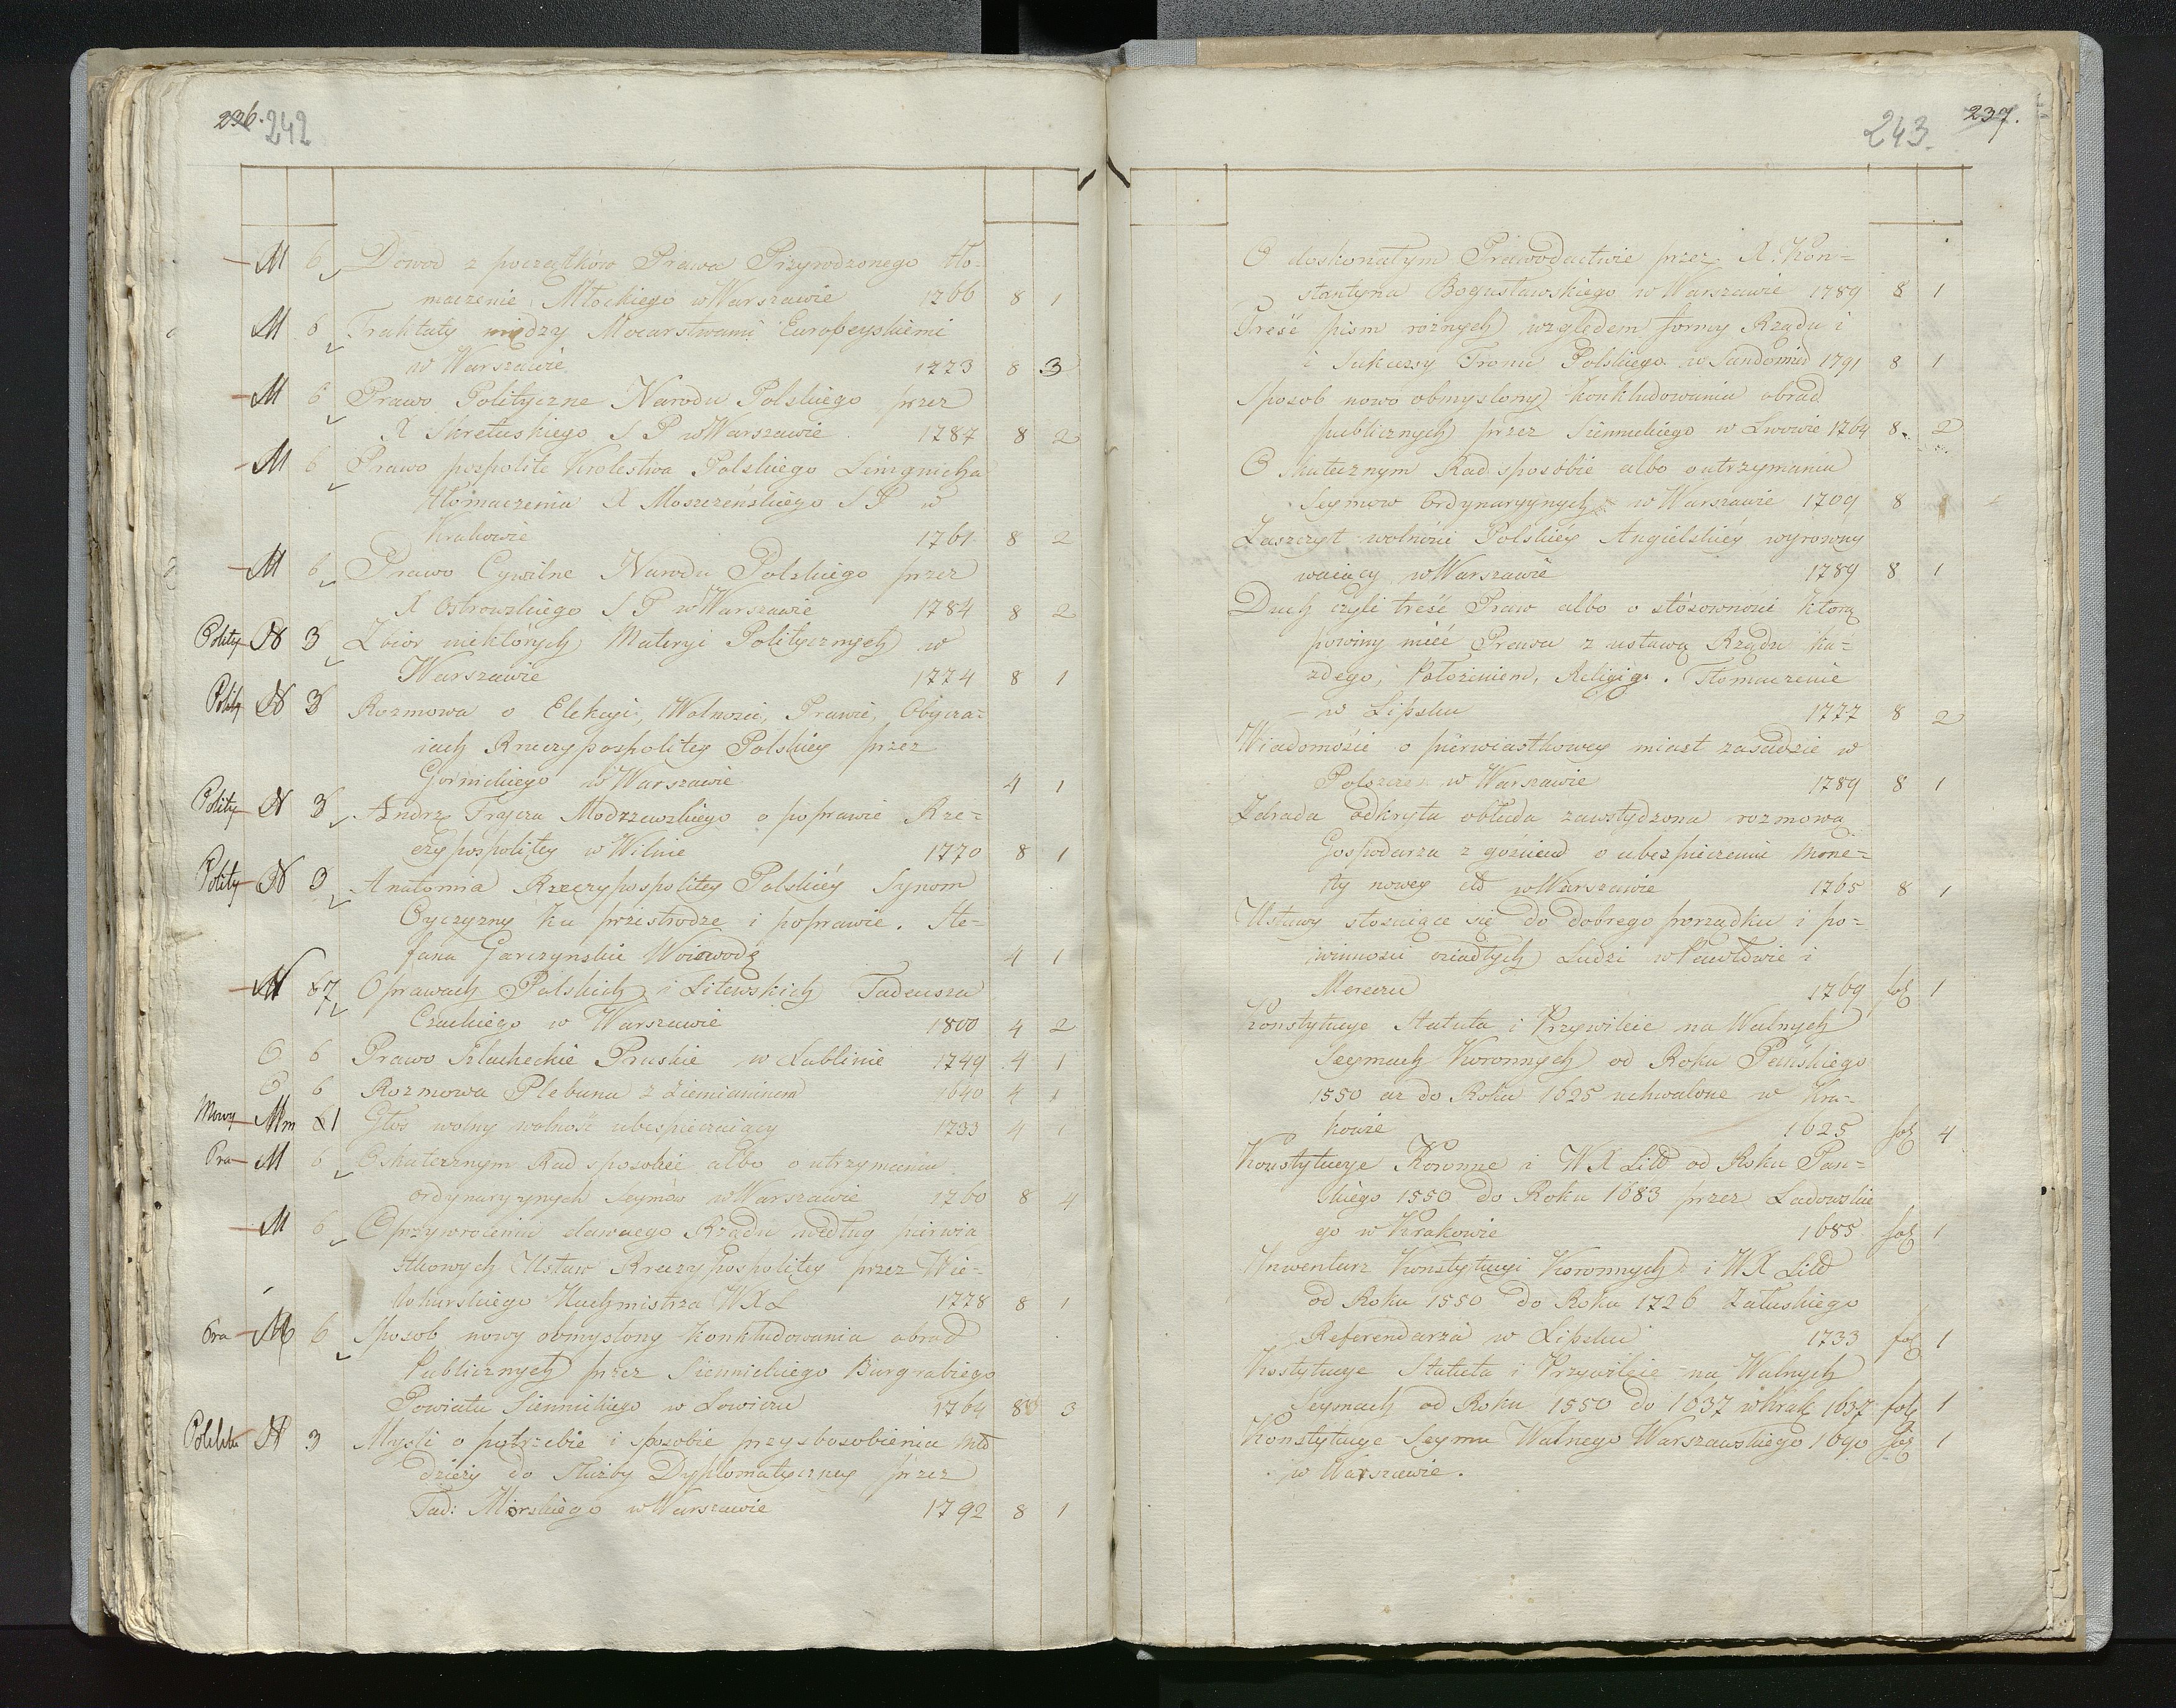 236. 242
— M 6 Dowod z początków Prawa Przyrodzonego tło-
maczenie Młockiego w Warszawie 1766 8 1
M 6 Traktaty między Mocarstwami Europeyskiemi
w Warszawie 1773 8 3
— M 6 Prawo Polityczne Narodu Polskiego przez
X Skrzetuskiego S P w Warszawie 1787 8 2
— M 6 Prawo pospolite Krolestwa Polskiego Lengnicha
tłomaczenia X Moszczeńskiego S P w
Krakowie 1761 8 2
— M 6 Prawo Cywilne Narodu Polskiego przez
X Ostrowskiego S P w Warszawie 1784 8 2
Polity— N 3 Zbior niektórych Materyi Politycznych w
Warszawie 1774 8 1
Polity N 3 Rozmowa o Elekcyi, Wolności, Prawie, Obycza-
iach Rzeczypospolitey Polskiey przez
Gornickiego w Warszawie 4 1
Polity— N 3 Andrz Frycza Modrzewskiego o poprawie Rze-
czypospolitey w Wilnie 1770 8 1
Polity— N 3 Anatomia Rzeczypospolitey Polskiéy Synom
Oyczyzny ku przestrodze i poprawie. Ste-
fana Garczynskie Woiewodę 4 1
— M 67 O prawach Polskich i Litewskich Tadeusza
Czackiego w Warszawie 1800 4 2
O 6 Prawo Szlacheckie Pruskie w Lublinie 1749 4 1
O 6 Rozmowa Plebana z Ziemianinem 1640 4 1
Mowy— Mm 61 Głos wolny wolność ubespieczaiący 1733 4 1
Pra— M 6 O skutecznym Rad sposobie albo o utrzymaniu
ordynaryynych seymów w Warszawie 1760 8 4
— M 6 O przywroceniu dawnego Rządu według pierwia
stkowych Ustaw Rzeczypospolitey przez Wie-
lohurskiego Kuchmistrza W X L 1778 8 1
Pra— M 6 Sposob nowy obmyslony konkludowania obrad
Publicznych przez Siennickiego Burgrabiego
Powiatu Siennickiego w Łowiczu 1764 8 3
N 3 Mysli o potrzebie i sposobie przysposobienia Mło
dzieży do służby Dyplomatyczney przez
Tad: Morskiego w Warszawie 1792 8 1
243. 237.
O doskonałym Prawodactwie przez X. Kon-
stantyna Bogusławskiego w Warszawie 1789 8 1
Treść pism rożnych względem formy Rządu i
i Sukcesyy Tronu Polskiego w Sandomid 1791 8 1
Sposob nowo obmyslony konkludowania obrad
publicznych przez Siennickiego w Lwowie 1764 8. 2
O skutecznym Rad sposóbie albo o utrzymaniu
Seymow Ordynaryynych w Warszawie 1709 8 1
Zaszczyt wolności Polskiéy Angielskiéy wyrowny
waiący w Warszawie 1789 8 1
Duch czyli treść Praw albo o stósowności ktorą
powiny mieć Prawa z ustawą Rządu ka-
zdego, Położeniem, Religią. Tłomaczenie
w Lipsku 1777 8 2
Wiadomości o pierwiastkowey miast zasadzie w
Polszcze w Warszawie 1789 8 1
Zdrada odkryta obłuda zawstydzona rozmową
Gospodarza z gościem o ubespieczeniu Mone-
ty nowey etc w Warszawie 1765 8 1
Ustawy stosuiące się do dobrego porządku i po-
winności osiadłych Ludzi w Pawłowie i
Mereczu 1769 fol 1
Konstytucye Statuta i Przywileie na Walnych
Seymach Koronnych od Roku Pańskiego
1550 az do Roku 1625 uchwalone w Kra-
kowie 1625 fol 4
Konstytucye Koronne i W X Litt od Roku Pań-
skiego 1550 do Roku 1683 przez Ladowskie
go w Krakowie 1685 fol 1
Inwentarz Konstytucyi Koronnych i W X Litt
od Roku 1550 do Roku 1726 Załuskiego
Referendarza w Lipsku 1733 fol 1
Kostytucye Statuta i Przywileie na Walnych
Seymach od Roku 1550 do 1637 w Krak 1637 fol 1
Konstytucye Seymu Walnego Warszawskiego 1690 fol 1
w Warszawie.